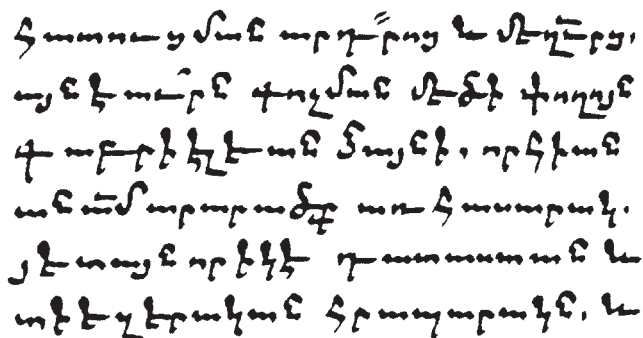 Հատուցման արդ՟րոց և մեղ՟րց.
այն է աւ՟րն գոչման մեծի փողոյն
գաբրիէլեան ձայնի. որ հիան
ան ա՟մ արարածք առ հասարակ.
յետ այնորիկ է դատաստան և
տիեզերական հրապարակն. և